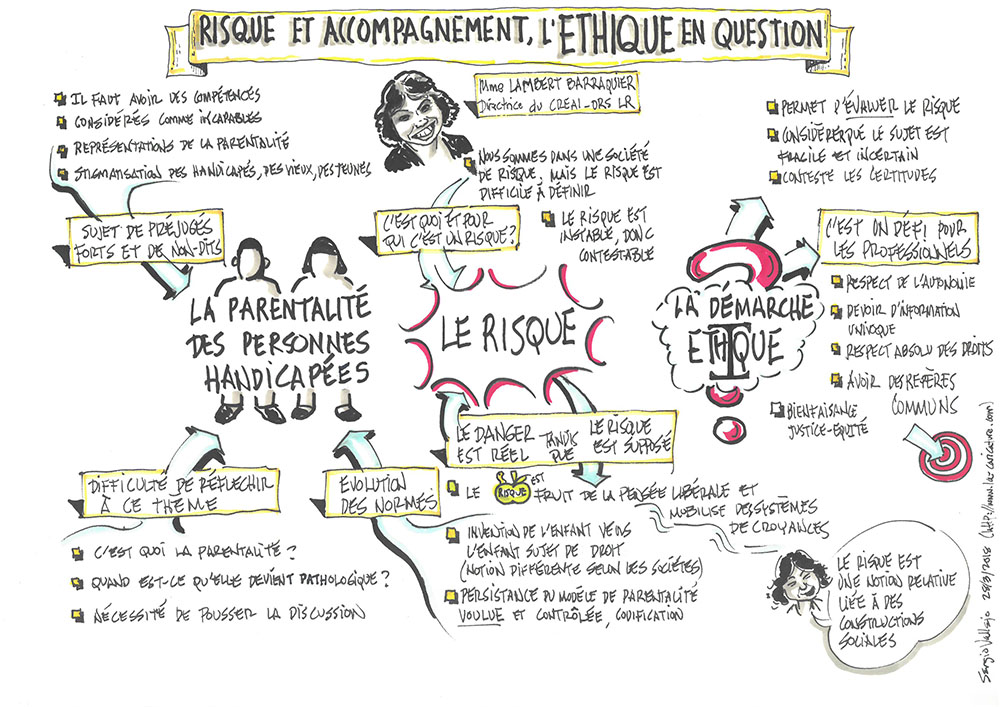 RISQUE ET ACCOMPAGNEMENT, L'ETHIQUE EN QUESTION
Mme LAMBERT BARRAQUIER
Directrice du CREAI-ORS LR
IL FAUT AVOIR DES COMPÉTENCES
CONSIDÉRÉS COMME INCAPABLES
REPRÉSENTATIONS DE LA PARENTALITÉ
STIGMATISATION DES HANDICAPÉS, DES VIEUX, DES JEUNES
SUJET DE PRÉJUGÉS
FORTS ET DE NON-DITS
LA PARENTALITÉ
DES PERSONNES
HANDICAPÉES
DIFFICULTÉ DE RÉFLECHIR
À CE THÈME
C'EST QUOI LA PARENTALITÉ ?
QUAND EST-CE QU'ELLE DEVIENT PATHOLOGIQUE ?
NÉCESSITÉ DE POUSSER LA DISCUSSION
EVOLUTION
DES NORMES
INVENTION DE L'ENFANT VERS
L'ENFANT SUJET DE DROIT
(NOTION DIFFÉRENTE SELON LES SOCIÉTÉS)
PERSISTANCE DU MODÈLE DE PARENTALITÉ
VOULUE ET CONTRÔLÉE, CODIFICATION
NOUS SOMMES DANS UNE SOCIÉTÉ
DE RISQUE, MAIS LE RISQUE EST
DIFFICILE À DÉFINIR
LE RISQUE EST
INSTABLE, DONC
CONTESTABLE
C'EST QUOI ET POUR
QUI C'EST UN RISQUE ?
LE RISQUE
LE DANGER EST RÉEL TANDIS QUE LE RISQUE EST SUPPOSÉ
LE RISQUE EST FRUIT DE LA PENSÉE LIBÉRALE ET
MOBILISE DES SYSTÈMES
DE CROYANCES
LE RISQUE EST
UNE NOTION RELATIVE
LIÉE À DES
CONSTRUCTIONS
SOCIALES
PERMET D'ÉVALUER LE RISQUE
CONSIDÈRER QUE LE SUJET EST
FRAGILE ET INCERTAIN
CONTESTE LES CERTITUDES
LA DÉMARCHE
ETHIQUE
C'EST UN DÉFI POUR
LES PROFESSIONNELS
RESPECT DE L'AUTONOMIE
DEVOIR D'INFORMATION
UNIVOQUE
RESPECT ABSOLU DES DROITS
AVOIR DES REPÈRES
COMMUNS
BIENFAISANCE
JUSTICE-EQUITÉ
Sergio Vallejo 28/3/2018 (http://www.laz caricature.com)